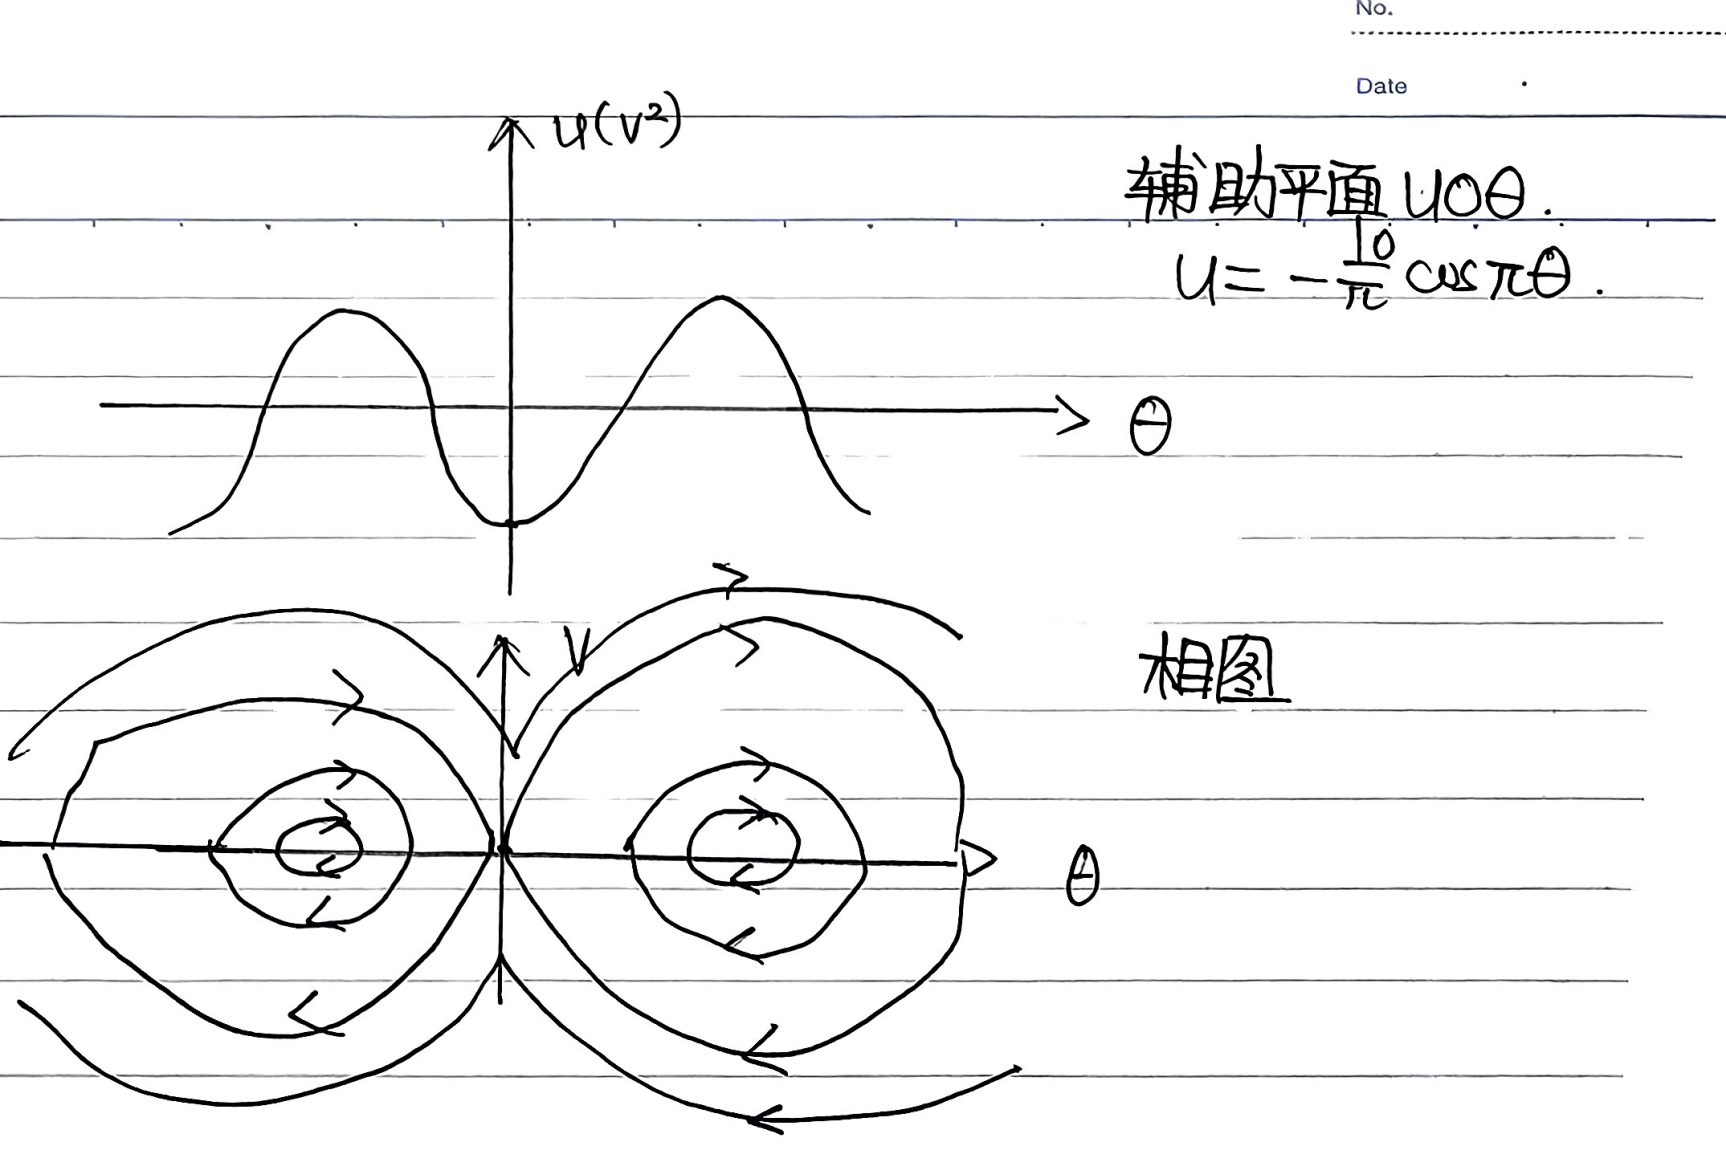 No.
Date
u(v²)
辅助平面 uoθ.
u = -10/π cosπθ.
θ
v
相图
θ